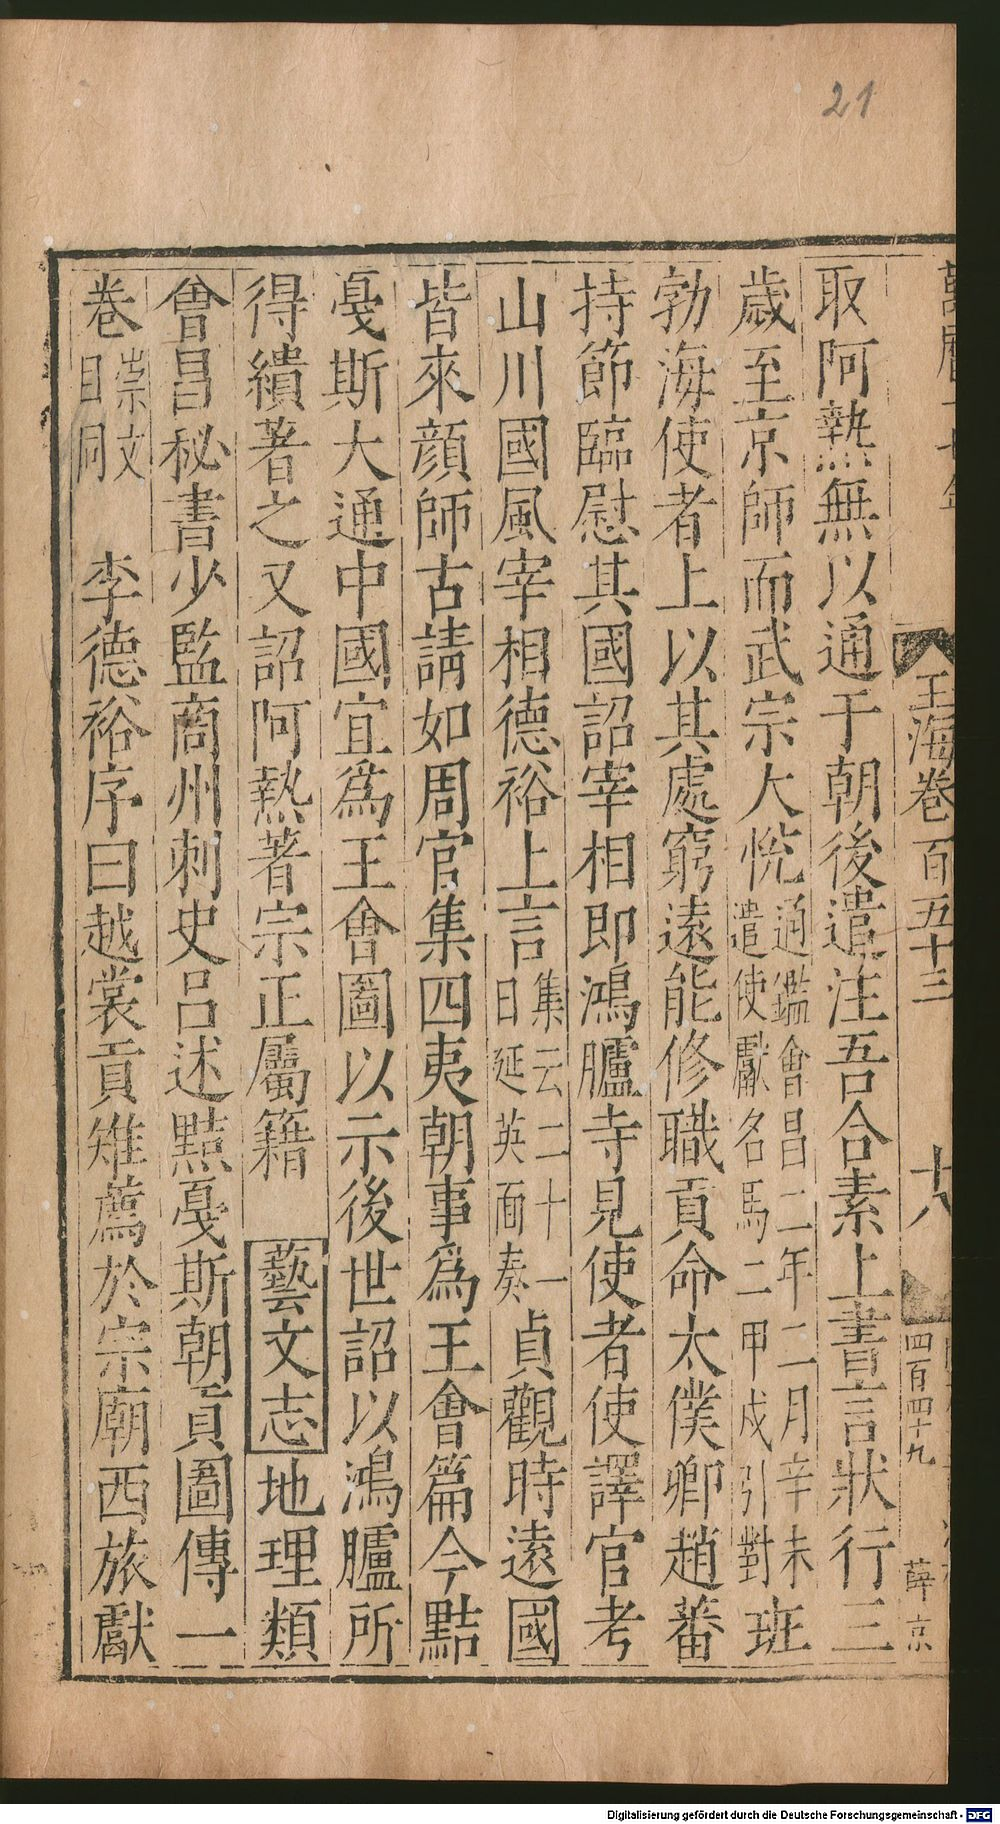 21
玉海卷百五十三
十八
四百四十九
薛京
取阿熱無以通于朝後遣注吾合素上書言狀行三
歲至京師而武宗大悅通鑑會昌二年二月辛未遣使獻名馬二甲戌引對班
勃海使者上以其處窮遠能修職貢命太僕卿趙蕃
持節臨慰其國詔宰相即鴻臚寺見使者使譯官考
山川國風宰相德裕上言集云二十一日延英面奏貞觀時遠國
皆來顏師古請如周官集四夷朝事為王會篇今黠
戛斯大通中國宜為王會圖以示後世詔以鴻臚所
得繢著之又詔阿熱著宗正屬籍 藝文志地理類
會昌秘書少監商州刺史呂述黠戛斯朝貢圖傳一
卷崇文目同 李德裕序曰越裳貢雉薦於宗廟西旅獻
Digitalisierung gefördert durch die Deutsche Forschungsgemeinschaft - DFG